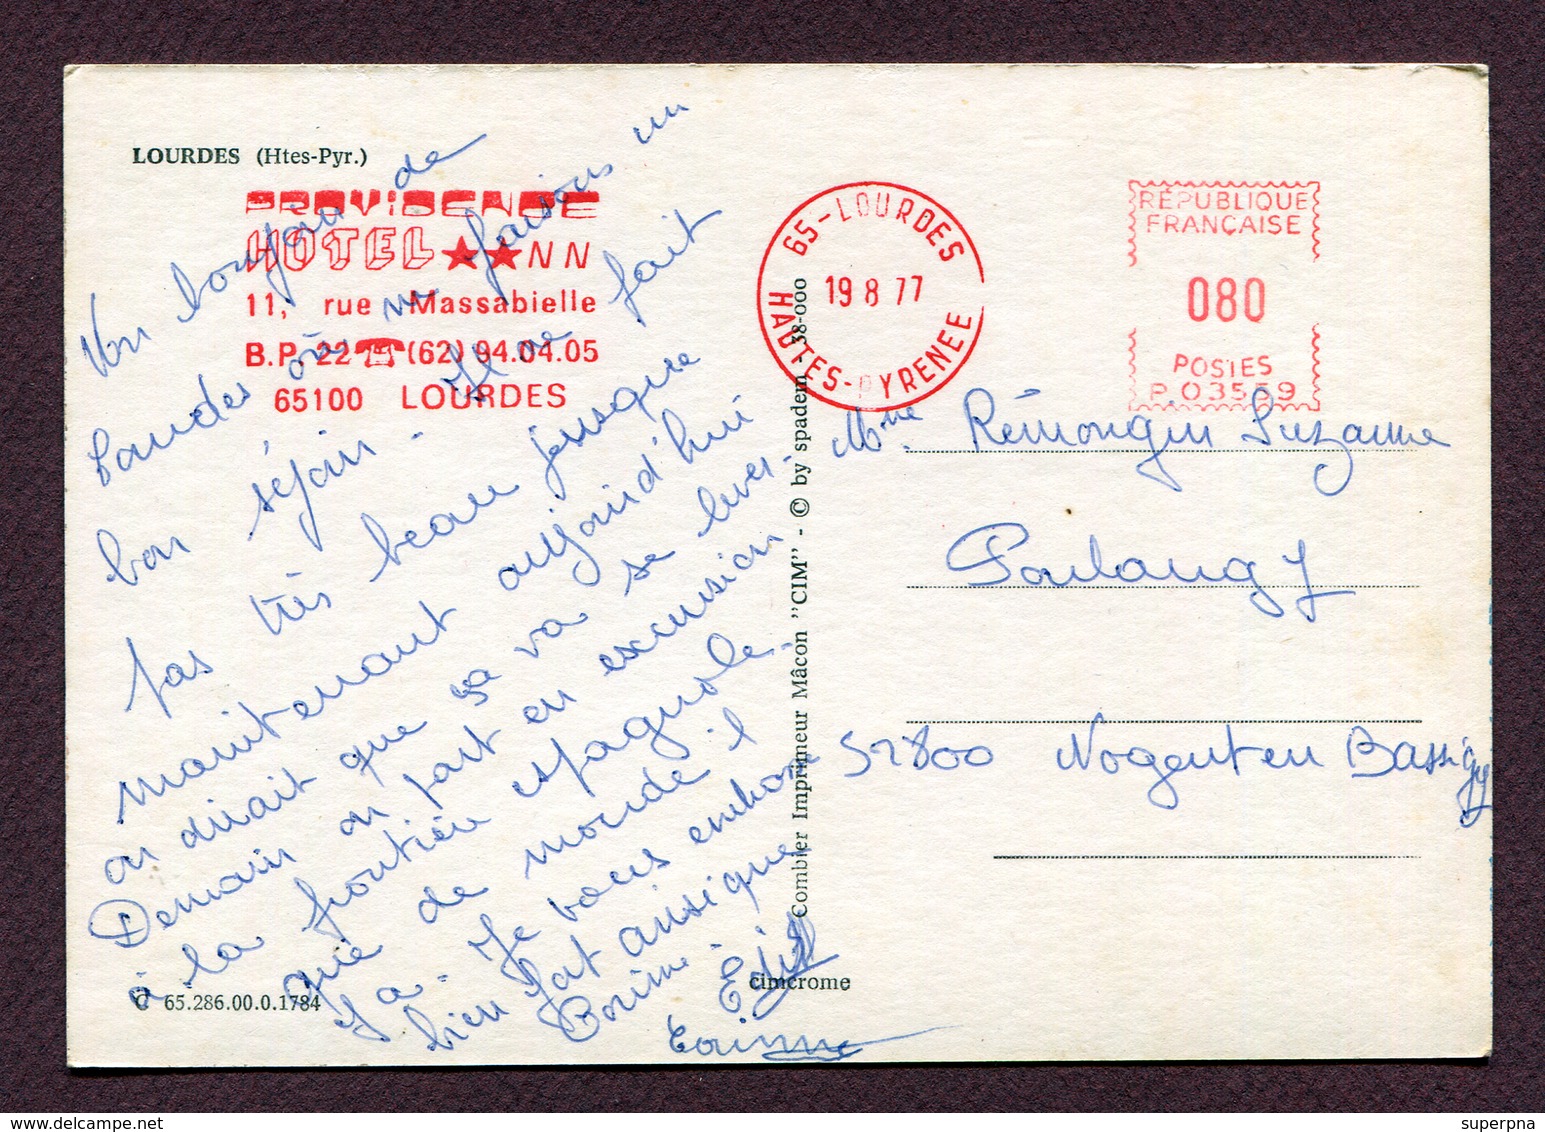 LOURDES (Htes-Pyr.)
PROVIDENCE
HOTEL ★★ NN
11, rue Massabielle
B.P. 22 ☎ (62) 94.04.05
65100 LOURDES
65-LOURDES
19 8 77
HAUTES-PYRENEE
RÉPUBLIQUE
FRANÇAISE
080
POSTES
P.03559
Un bonjour de
Lourdes où ns faisons un
bon séjour - Il ne fait
pas très beau jusque
maintenant aujourd'hui
on dirait que ça va se lever.
Demain on part en excursion
à la frontière espagnole.
que de monde il
y a. Je vous embrasse
bien fort ainsi que
Corinne
Edith
Corinne
Mme Rémongin Suzanne
Poulangy
52800 Nogent en Bassigny
Combier Imprimeur Mâcon "CIM" - © by spadem - 38-000
C 65.286.00.0.1784
cimcrome
superpna